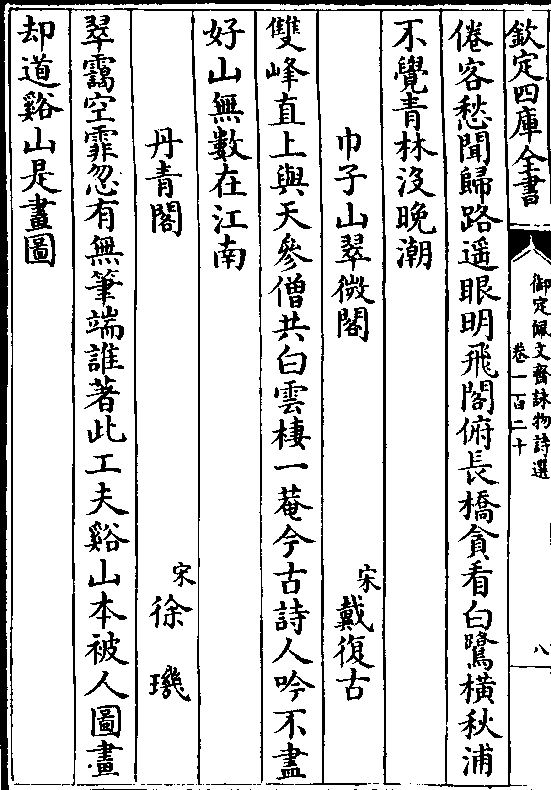 欽定四庫全書
御定佩文齋詠物詩選
卷一百二十
八
倦客愁聞歸路遥眼明飛閣俯長橋貪看白鷺橫秋浦
不覺青林没晚潮
巾子山翠微閣
宋戴復古
雙峰直上與天參僧共白雲棲一菴今古詩人吟不盡
好山無數在江南
丹青閣
宋徐璣
翠靄空霏忽有無筆端誰著此工夫谿山本被人圖畫
却道谿山是畫圖